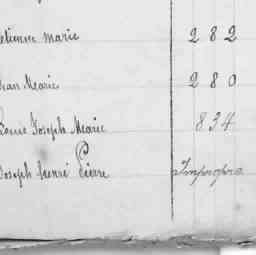 etienne marie 282
Jean Marie 280
Louis Joseph Marie 834
Joseph henri Pierre Impropre